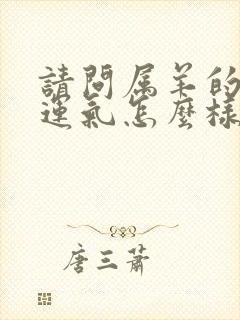 請問属羊的
運氣怎麼樣
唐三蕭